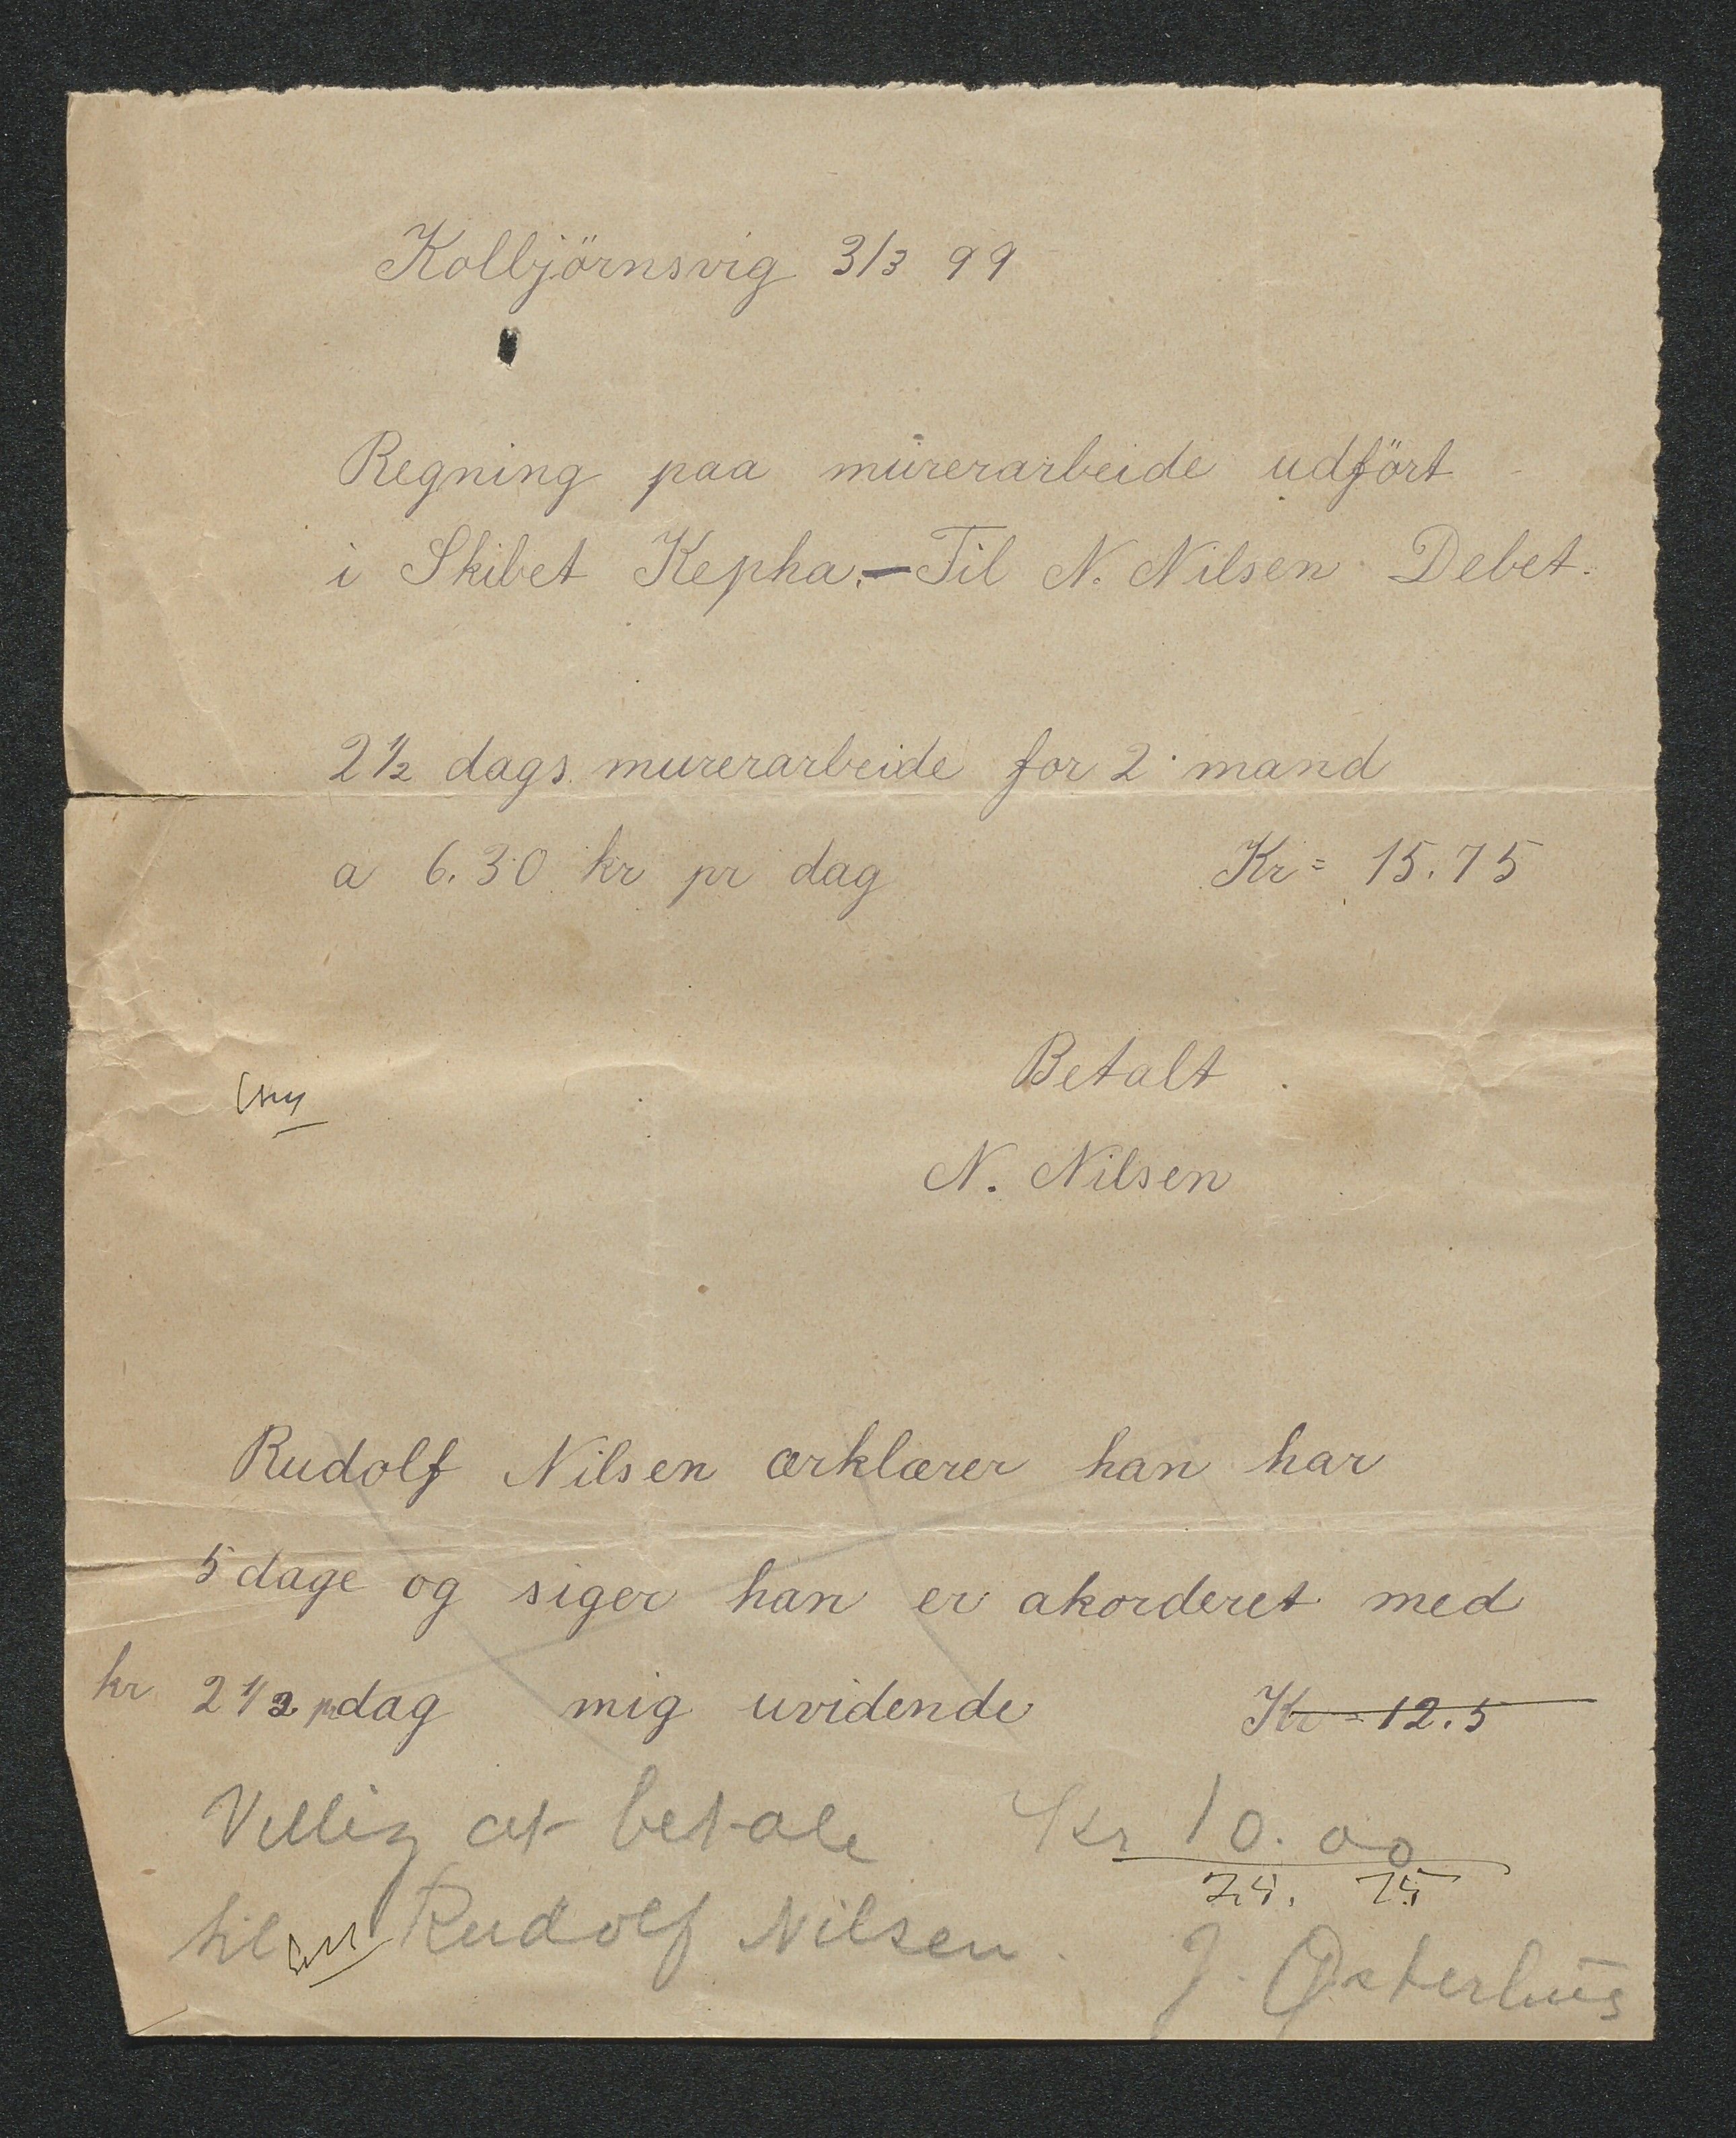 Kolbjörnsvig 3/3 99
Regning paa murerarbeide udfört
i Skibet Kepha.— Til N. Nilsen Debet.
2 1/2 dags murerarbeide for 2 mand
a 6.30 kr pr dag Kr = 15.75
Betalt
N. Nilsen
Rudolf Nilsen ærklærer han har
5 dage og siger han er akorderet med
kr 2 1/2 pr dag mig uvidende Kr = 12.5
Villig at betale Kr 10.00
til Rudolf Nilsen.
J. Østerhus